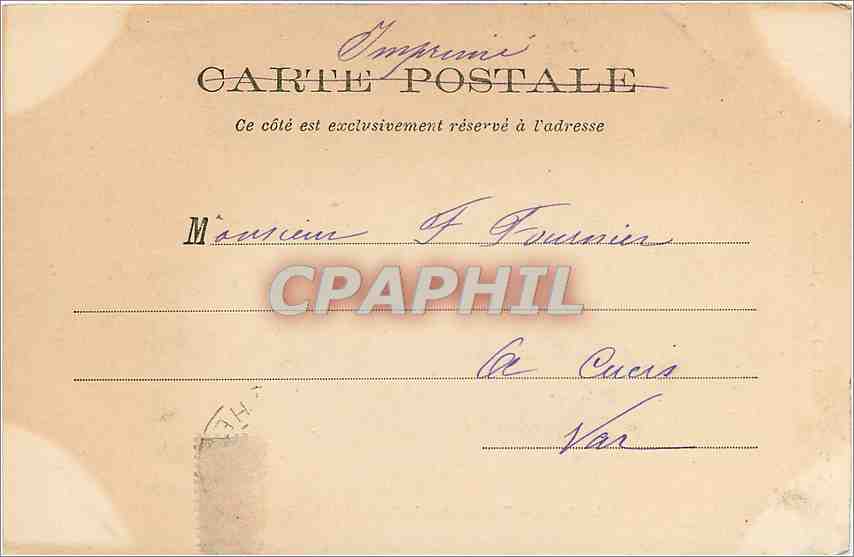 Imprimé
CARTE POSTALE
Ce côté est exclusivement réservé à l'adresse
Monsieur F Fournier
CPAPHIL
A Cuers
Var
HE